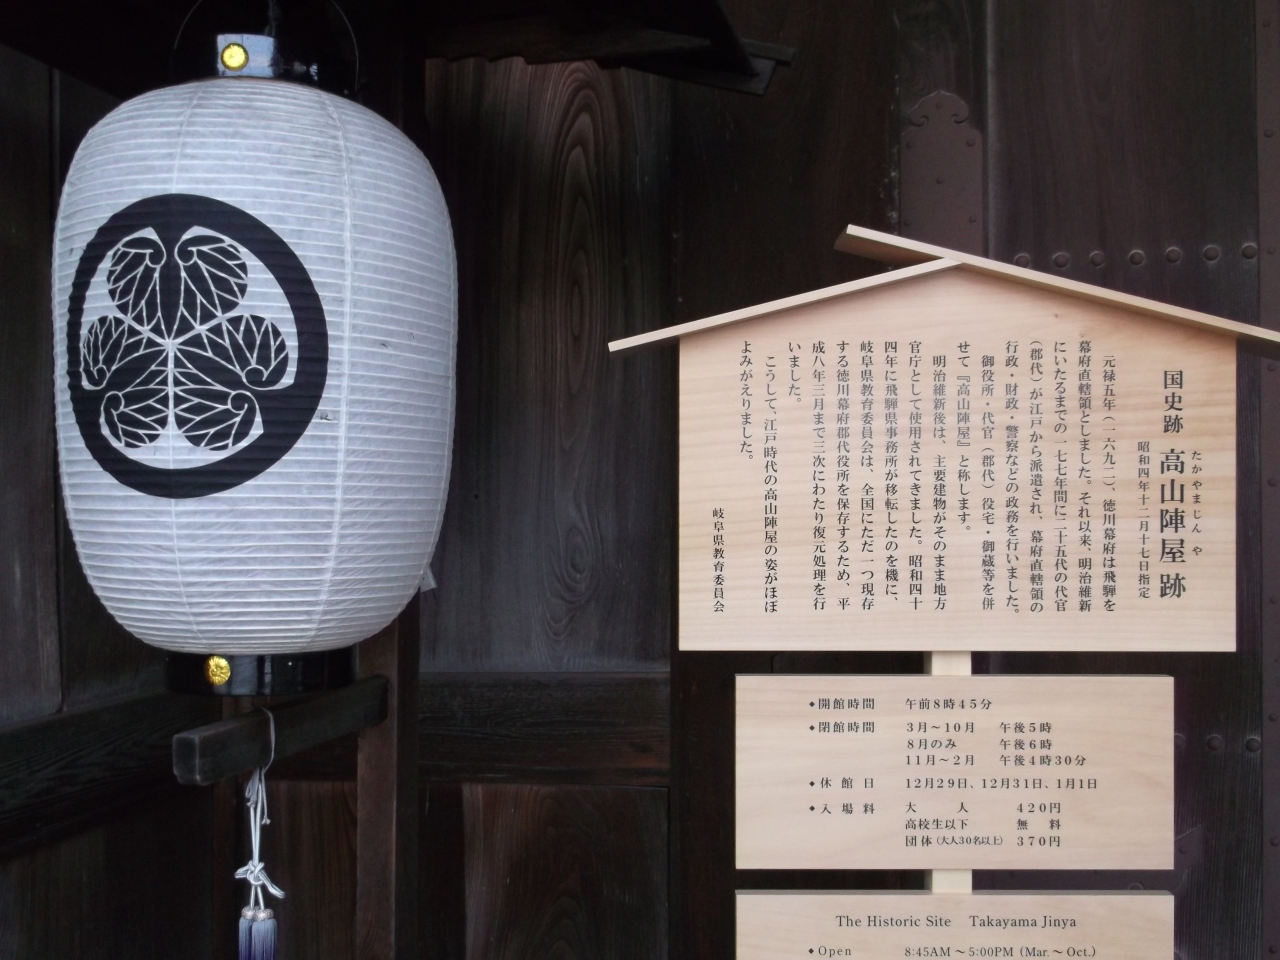 国史跡 高山陣屋跡
たかやまじんや
昭和四年十二月十七日指定
元禄五年(一六九二)、徳川幕府は飛騨を
幕府直轄領としました。それ以来、明治維新
にいたるまでの一七七年間に二十五代の代官
(郡代)が江戸から派遣され、幕府直轄領の
行政・財政・警察などの政務を行いました。
御役所・代官(郡代)役宅・御蔵等を併
せて『高山陣屋』と称します。
明治維新後は、主要建物がそのまま地方
官庁として使用されてきました。昭和四十
四年に飛騨県事務所が移転したのを機に、
岐阜県教育委員会は、全国にただ一つ現存
する徳川幕府郡代役所を保存するため、平
成八年三月まで三次にわたり復元処理を行
いました。
こうして、江戸時代の高山陣屋の姿がほぼ
よみがえりました。
岐阜県教育委員会
◆開館時間 午前8時45分
◆閉館時間 3月～10月 午後5時
8月のみ 午後6時
11月～2月 午後4時30分
◆休館日 12月29日、12月31日、1月1日
◆入場料 大人 420円
高校生以下 無料
団体(大人30名以上) 370円
The Historic Site Takayama Jinya
◆Open 8:45AM～5:00PM (Mar.～Oct.)